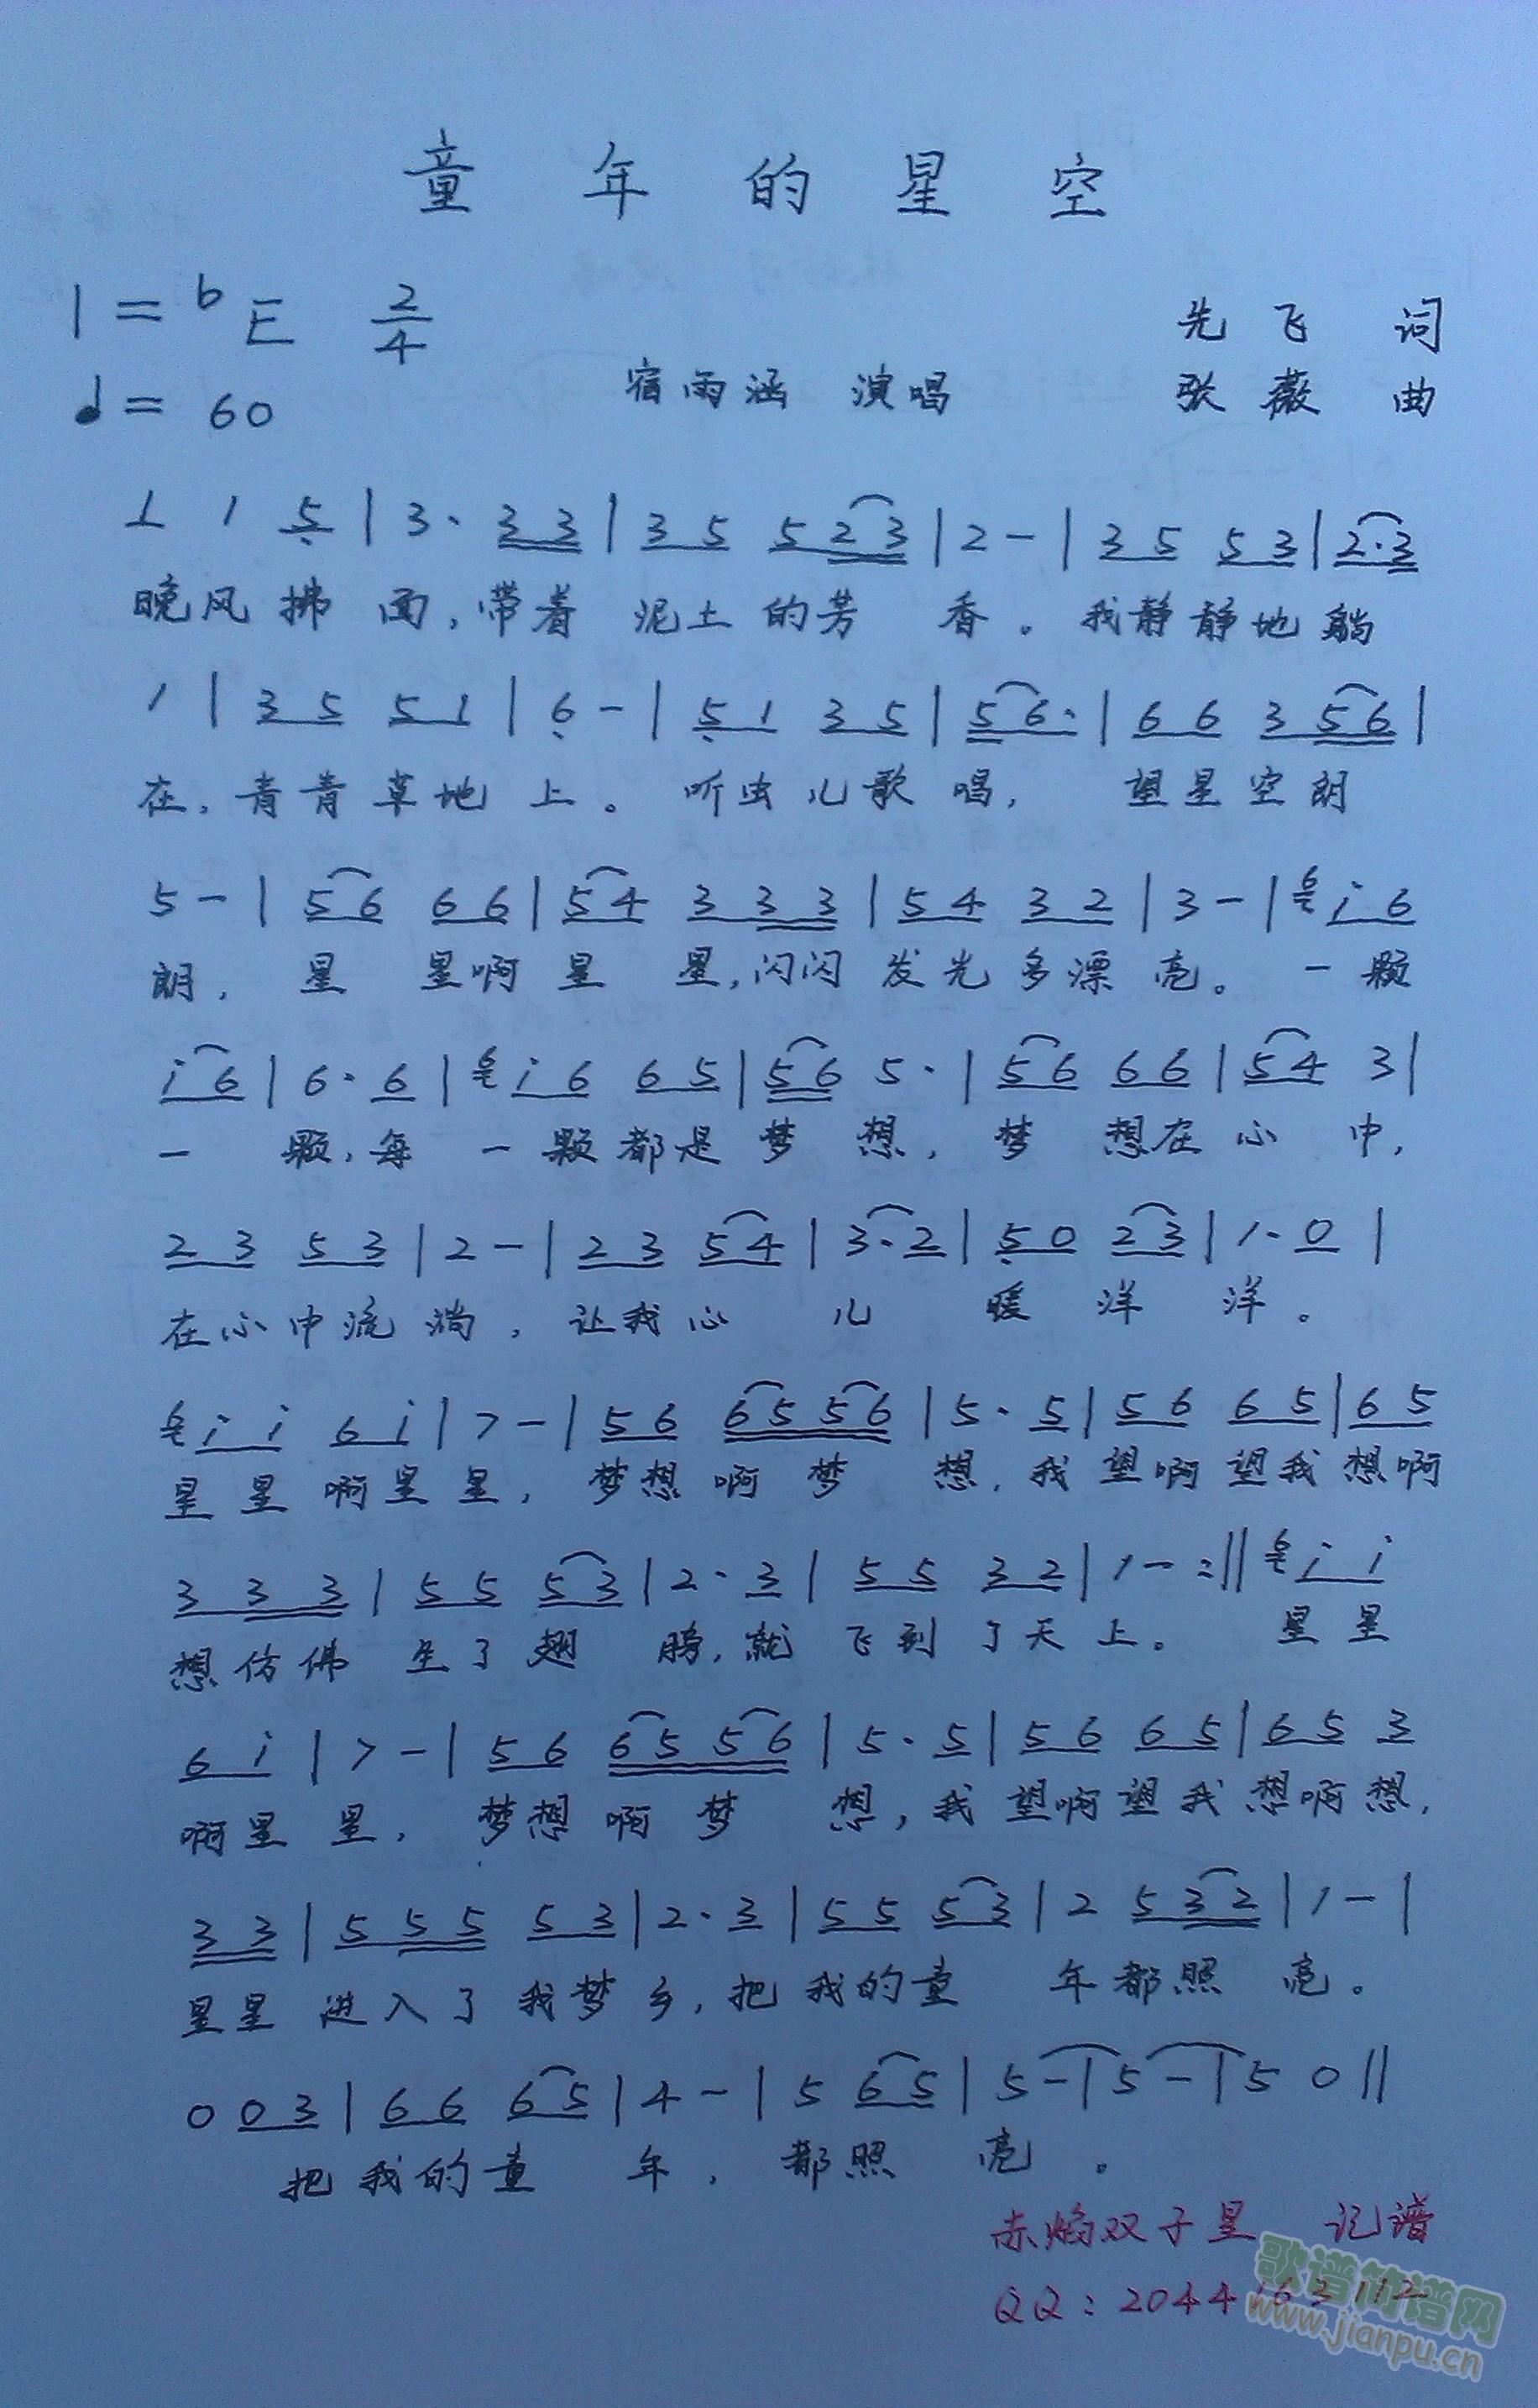 童年的星空
1=bE 2/4
先飞 词
♩= 60
宿雨涵 演唱
张薇 曲
1 1 5 | 3· 3 3 | 3 5 5 2 3 | 2 - | 3 5 5 3 | 2·3
晚风拂面,带着泥土的芳香。我静静地躺
1 | 3 5 5 1 | 6 - | 5 1 3 5 | 5 6· | 6 6 3 5 6 |
在,青青草地上。听虫儿歌唱,望星空朗
5 - | 5 6 6 6 | 5 4 3 3 3 | 5 4 3 2 | 3 - | 6 i 6
朗,星星啊星星,闪闪发光多漂亮。一颗
i 6 | 6· 6 | 6 i 6 6 5 | 5 6 5· | 5 6 6 6 | 5 4 3 |
一颗,每一颗都是梦想,梦想在心中,
2 3 5 3 | 2 - | 2 3 5 4 | 3·2 | 5 0 2 3 | 1· 0 |
在心中流淌,让我心儿暖洋洋。
6 i i 6 i | > - | 5 6 6 5 5 6 | 5· 5 | 5 6 6 5 | 6 5
星星啊星星,梦想啊梦想,我望啊望我想啊
3 3 3 | 5 5 5 3 | 2· 3 | 5 5 3 2 | 1 - :|| 6 i i
想仿佛生了翅膀,就飞到了天上。星星
6 i | > - | 5 6 6 5 5 6 | 5· 5 | 5 6 6 5 | 6 5 3
啊星星,梦想啊梦想,我望啊望我想啊想,
3 3 | 5 5 5 5 3 | 2· 3 | 5 5 5 3 | 2 5 3 2 | 1 - |
星星进入了我梦乡,把我的童年都照亮。
0 0 3 | 6 6 6 5 | 4 - | 5 6 5 | 5 - | 5 - | 5 0 ||
把我的童年,都照亮。
赤焰双子星 记谱
QQ:2044163112
歌谱简谱网
www.jianpu.cn